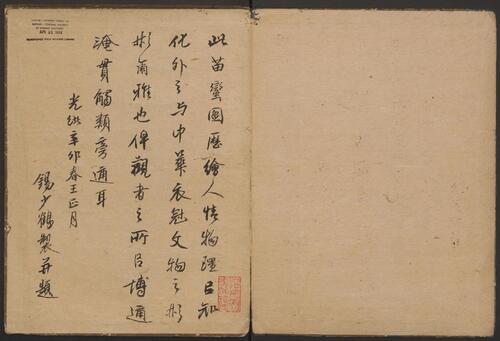 此苗蠻圖歷繪人情物理㠯知
化外之与中華衣冠文物之彬
彬爾雅也俾觀者之所㠯博通
淹貫觸類旁通耳
光緒辛卯春王正月
錫少鶴製并題